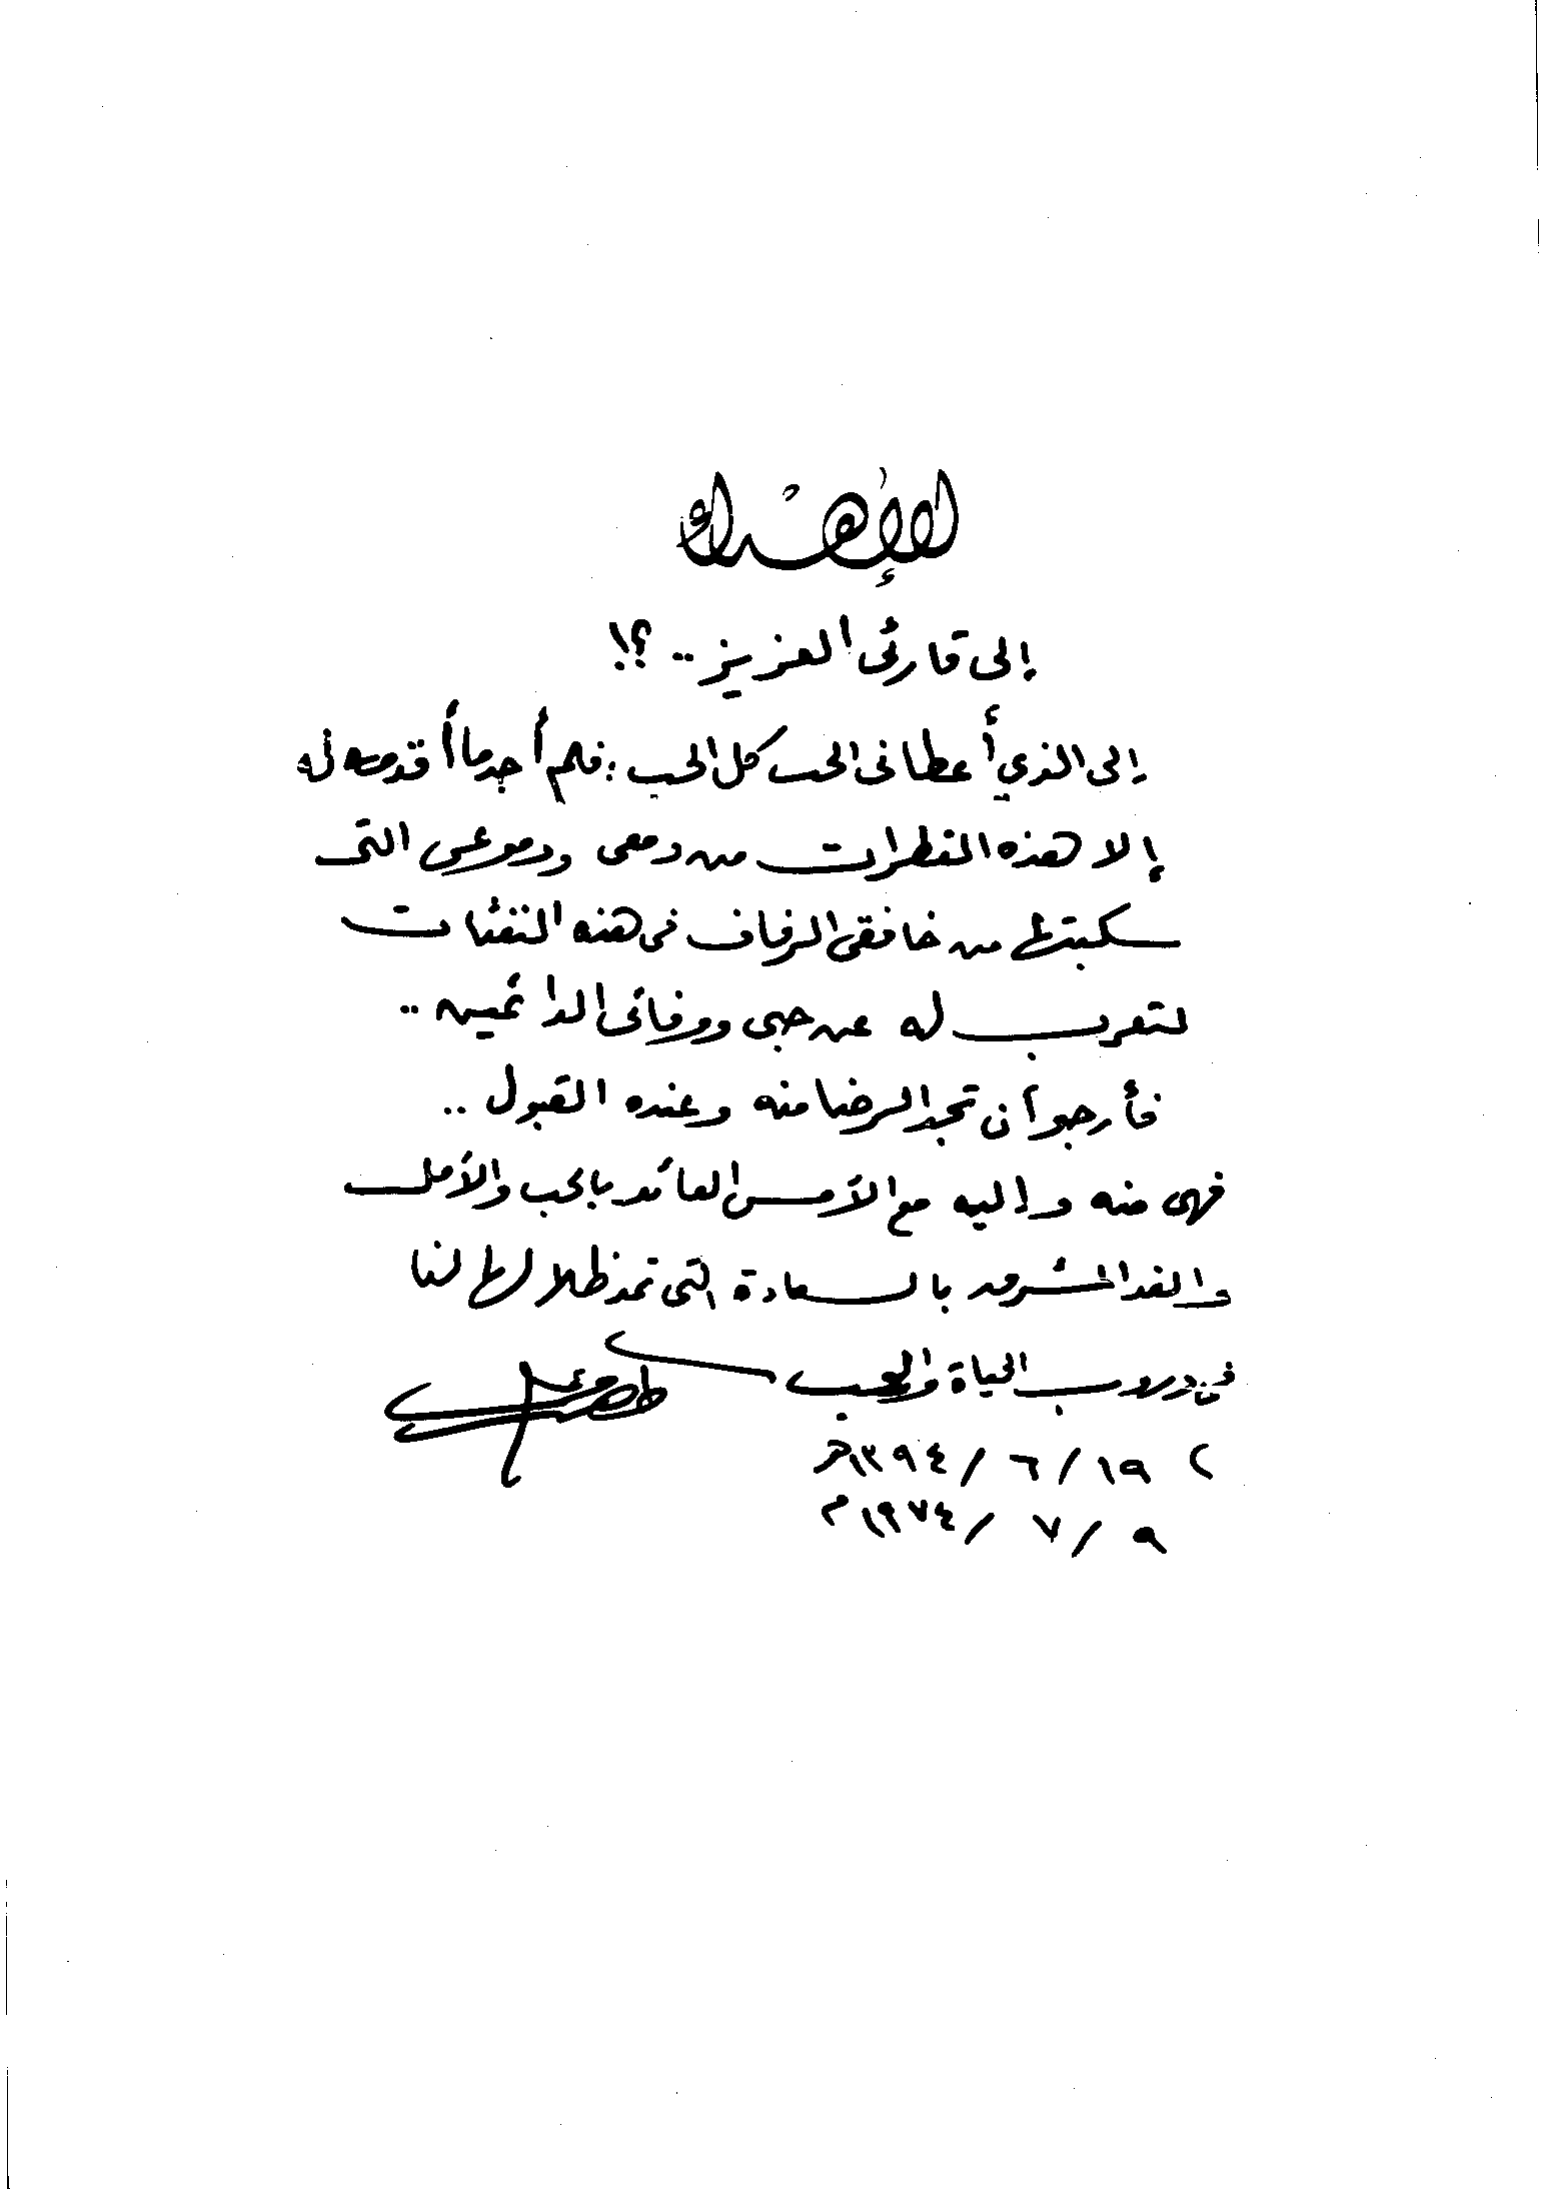 الإهداء
إلى قارئى العزيز .. ؟!
إلى الذي أعطانى الحب كل الحب ؛ فلم أجد ما أقدمه له
إلا هذه القطرات من دمعى ودموعى التى
سكبتها من خافقى الرفاف فى هذه النفثات
لتعرب له عن حبى ووفائى الدائمين ..
فأرجو أن تجد الرضا منه وعنده القبول ..
فهى منه وإليه مع الأمس العائد بالحب والأمل
والغد المشرق بالسعادة التى تمد ظلالها لنا
فى دروب الحياة والحب
١٩ / ٦ / ١٣٩٤هـ
٩ / ٧ / ١٩٧٤م